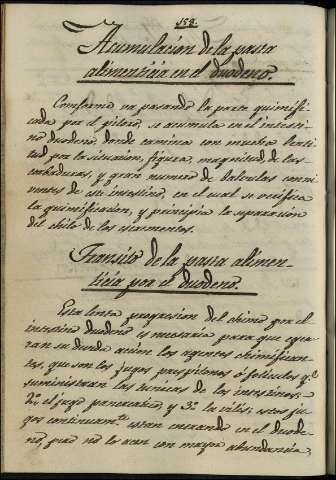 153.
Acumulacion de la pasta
alimenticia en el duodeno.
Conforme va pasando la pasta quimifi-
cada por el piloro, se acumula en el intesti-
no duodeno, donde camina con mucha lenti-
tud por la situacion, figura, magnitud de las
corbaduras, y gran numero de balbulas conni-
ventes de este intestino, en el cual se verifica
la quimificacion, y principia la separacion
del chilo de los escrementos.
Transito de la pasta alimen-
ticia por el duodeno.
Esta lenta progresion del chimo por el
intestino duodeno es necesaria para que ejer-
zan su accion los agentes chimifican-
tes, que son los jugos
suministran las tunicas de los intestinos;
2º. el jugo pancreatico, y 3º. la vilis; estos ju-
gos continuamte. estan entrando en el duode-
no, pero no lo acen con mayor abundancia,